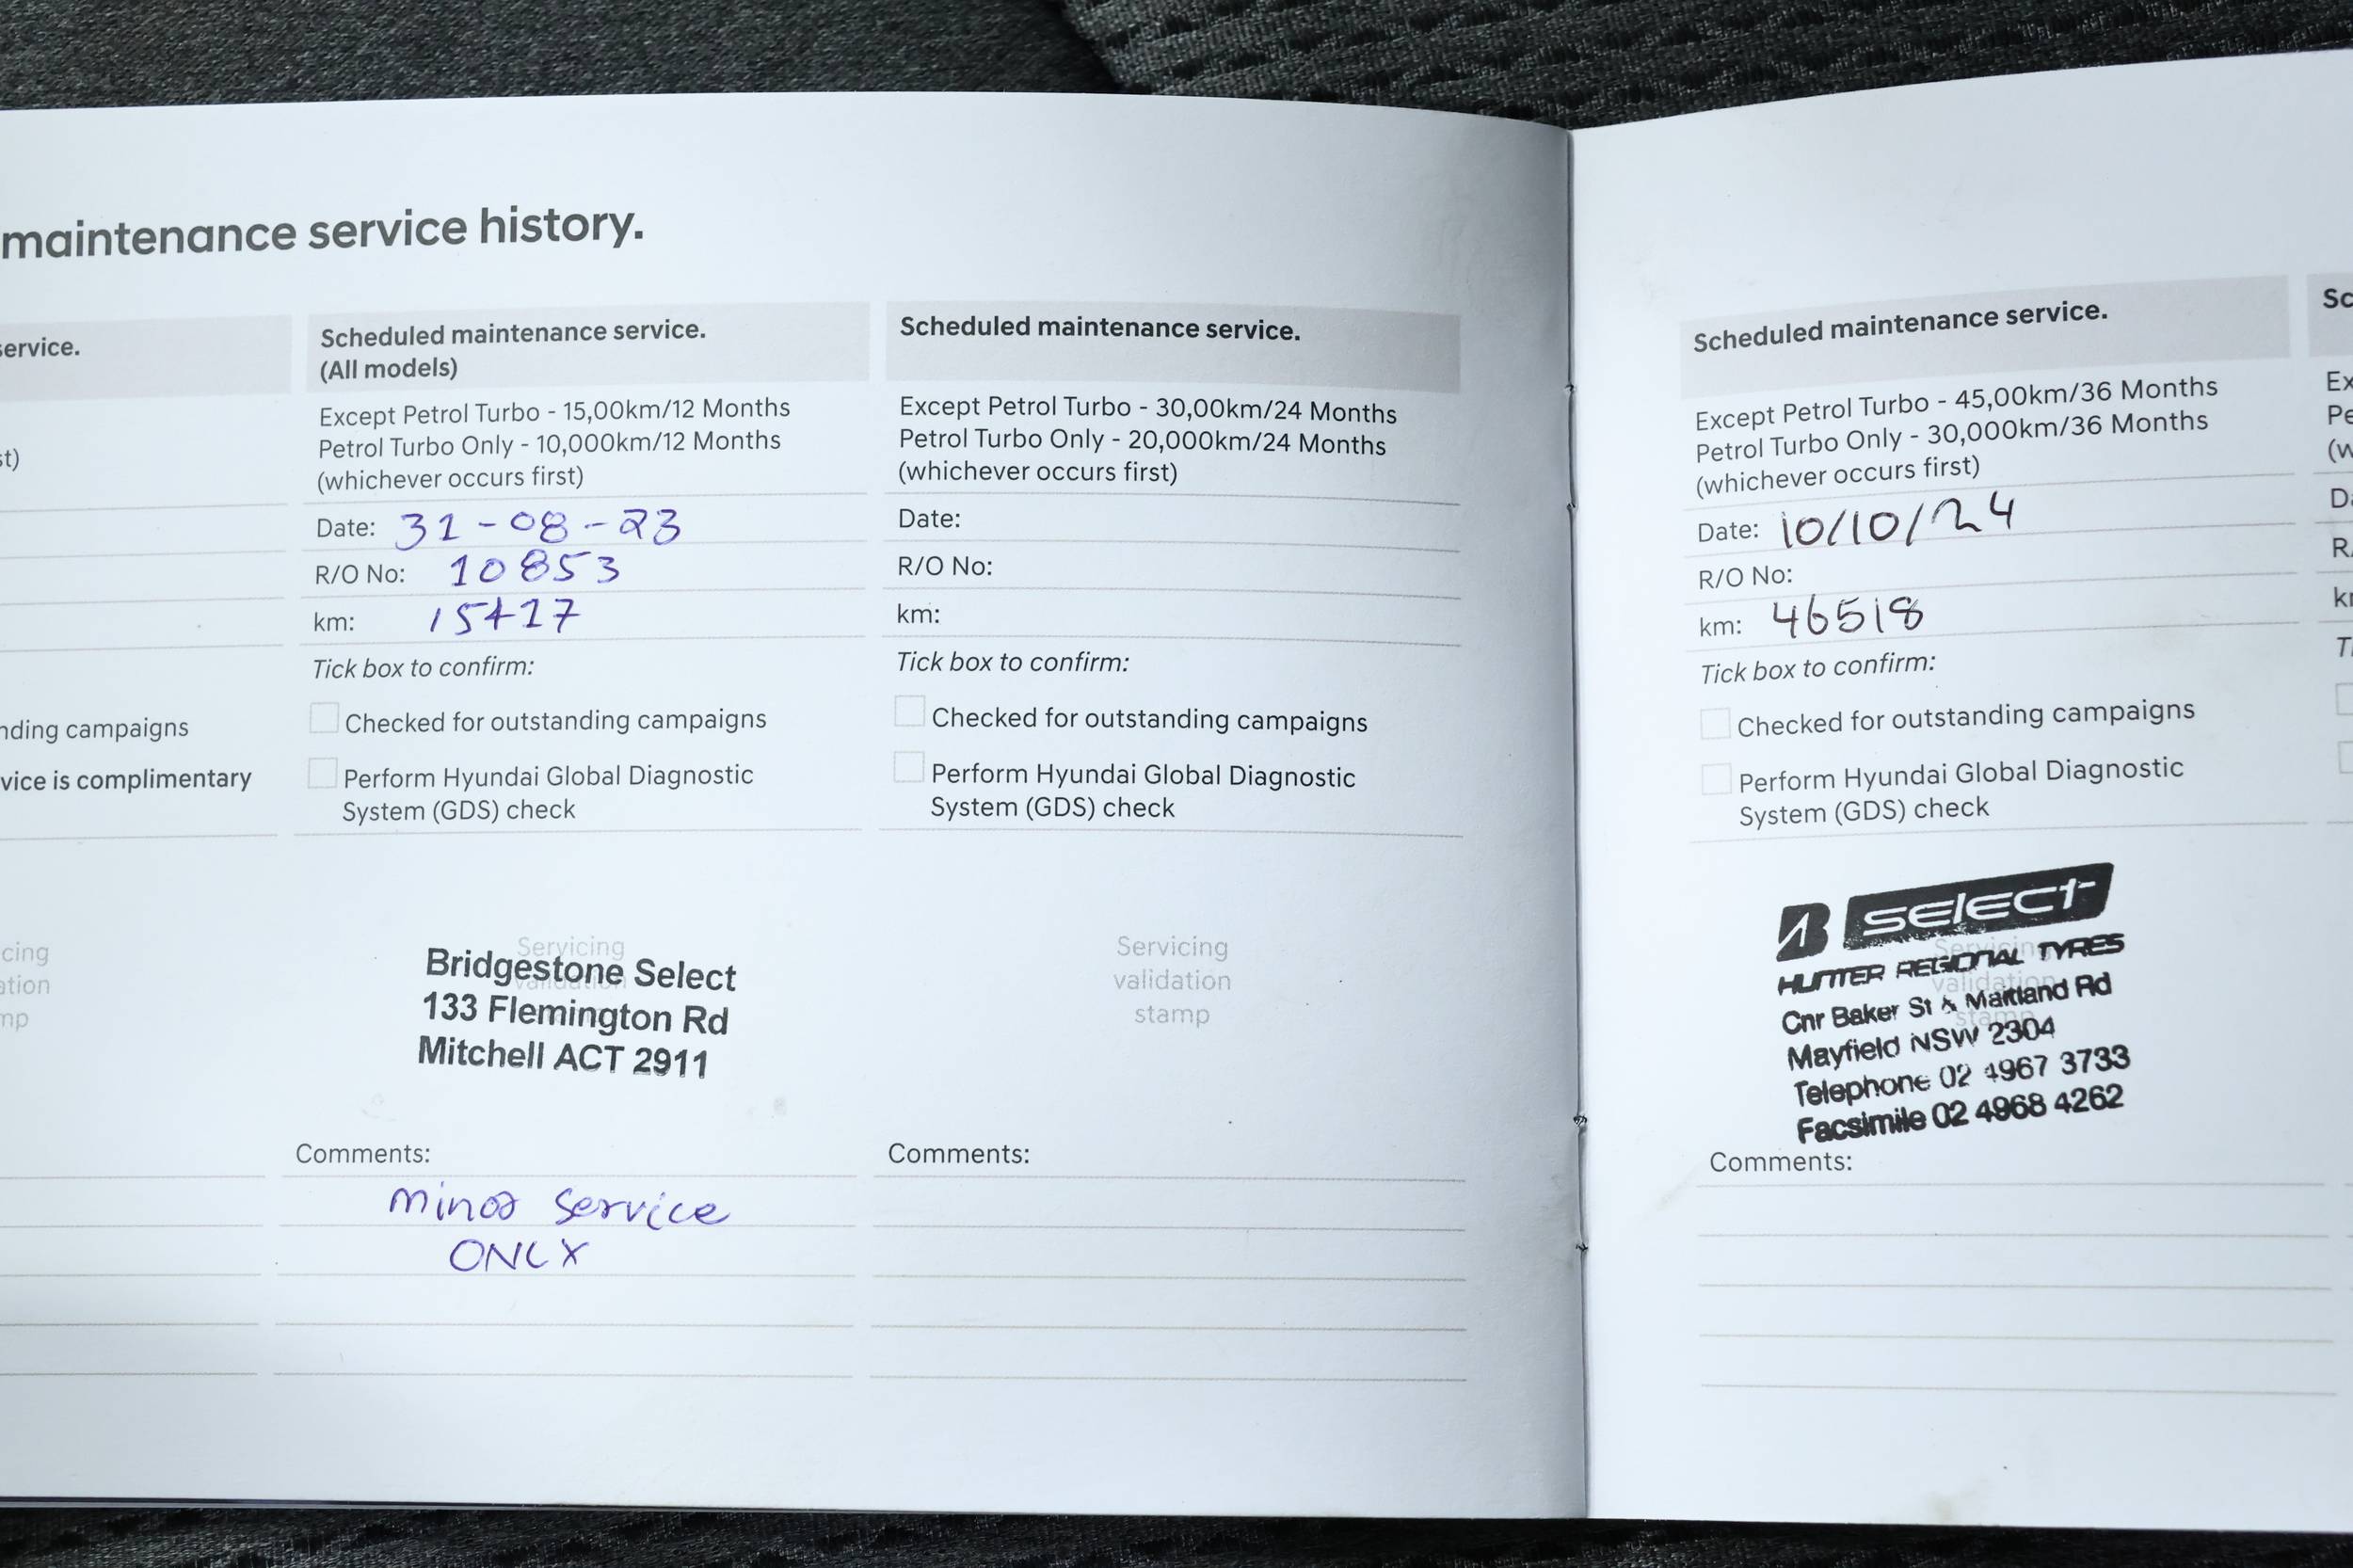 maintenance service history.
service.
st)
nding campaigns
vice is complimentary
cing
ation
mp
Scheduled maintenance service.
(All models)
Except Petrol Turbo - 15,00km/12 Months
Petrol Turbo Only - 10,000km/12 Months
(whichever occurs first)
Date: 31-08-23
R/O No: 10853
km: 15417
Tick box to confirm:
Checked for outstanding campaigns
Perform Hyundai Global Diagnostic
System (GDS) check
Servicing
validation
Bridgestone Select
133 Flemington Rd
Mitchell ACT 2911
Comments:
minor service
ONLY
Scheduled maintenance service.
Except Petrol Turbo - 30,00km/24 Months
Petrol Turbo Only - 20,000km/24 Months
(whichever occurs first)
Date:
R/O No:
km:
Tick box to confirm:
Checked for outstanding campaigns
Perform Hyundai Global Diagnostic
System (GDS) check
Servicing
validation
stamp
Comments:
Scheduled maintenance service.
Except Petrol Turbo - 45,00km/36 Months
Petrol Turbo Only - 30,000km/36 Months
(whichever occurs first)
Date: 10/10/24
R/O No:
km: 46518
Tick box to confirm:
Checked for outstanding campaigns
Perform Hyundai Global Diagnostic
System (GDS) check
Servicing
validation
stamp
B SELECT
HUNTER REGIONAL TYRES
Cnr Baker St & Maitland Rd
Mayfield NSW 2304
Telephone 02 4967 3733
Facsimile 02 4968 4262
Comments:
Sc
Ex
Pe
(w
Da
R/
km
Ti